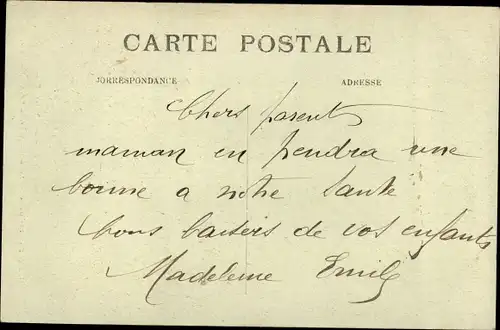 CARTE POSTALE
CORRESPONDANCE
ADRESSE
Chers parents
maman en pendra une
bonne a notre santé
bons baisers de vos enfants
Madeleine Emile